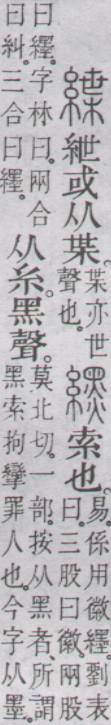 緤紲或从枼。枼亦世
聲也。
纆索也。易係用徽纆。劉表
曰。三股曰徽。兩股
曰纆。字林曰。兩合
曰糾。三合曰纆。
从糸。黑聲。莫北切。一部。按从黑者。所謂
黑索拘攣罪人也。今字从墨。